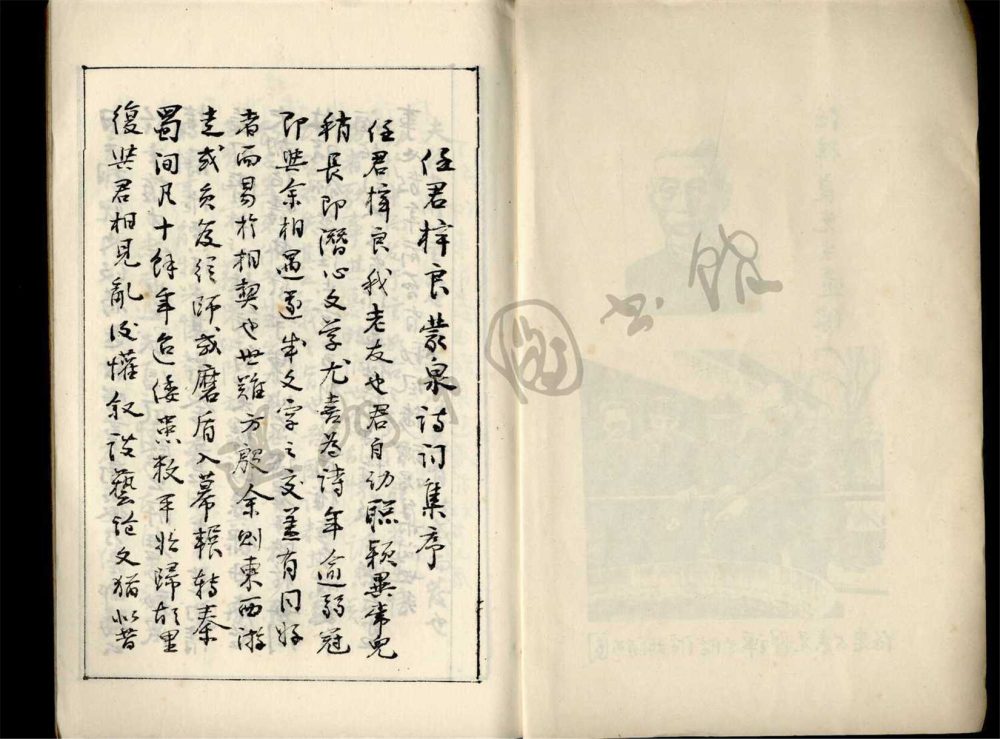 任君梓良叢泉诗词集序
任君梓良我老友也君自幼聰颖異常兒
稍長即潛心文学尤喜为詩年逾弱冠
即與余相遇遂成文字之交盖有同好
者而易於相契也世難方殷余则東西游
走或负笈從師或磨盾入幕輾转秦
蜀间凡十餘年迨倭寇敉平始歸故里
復與君相見亂後懽叙談藝论文猶似昔